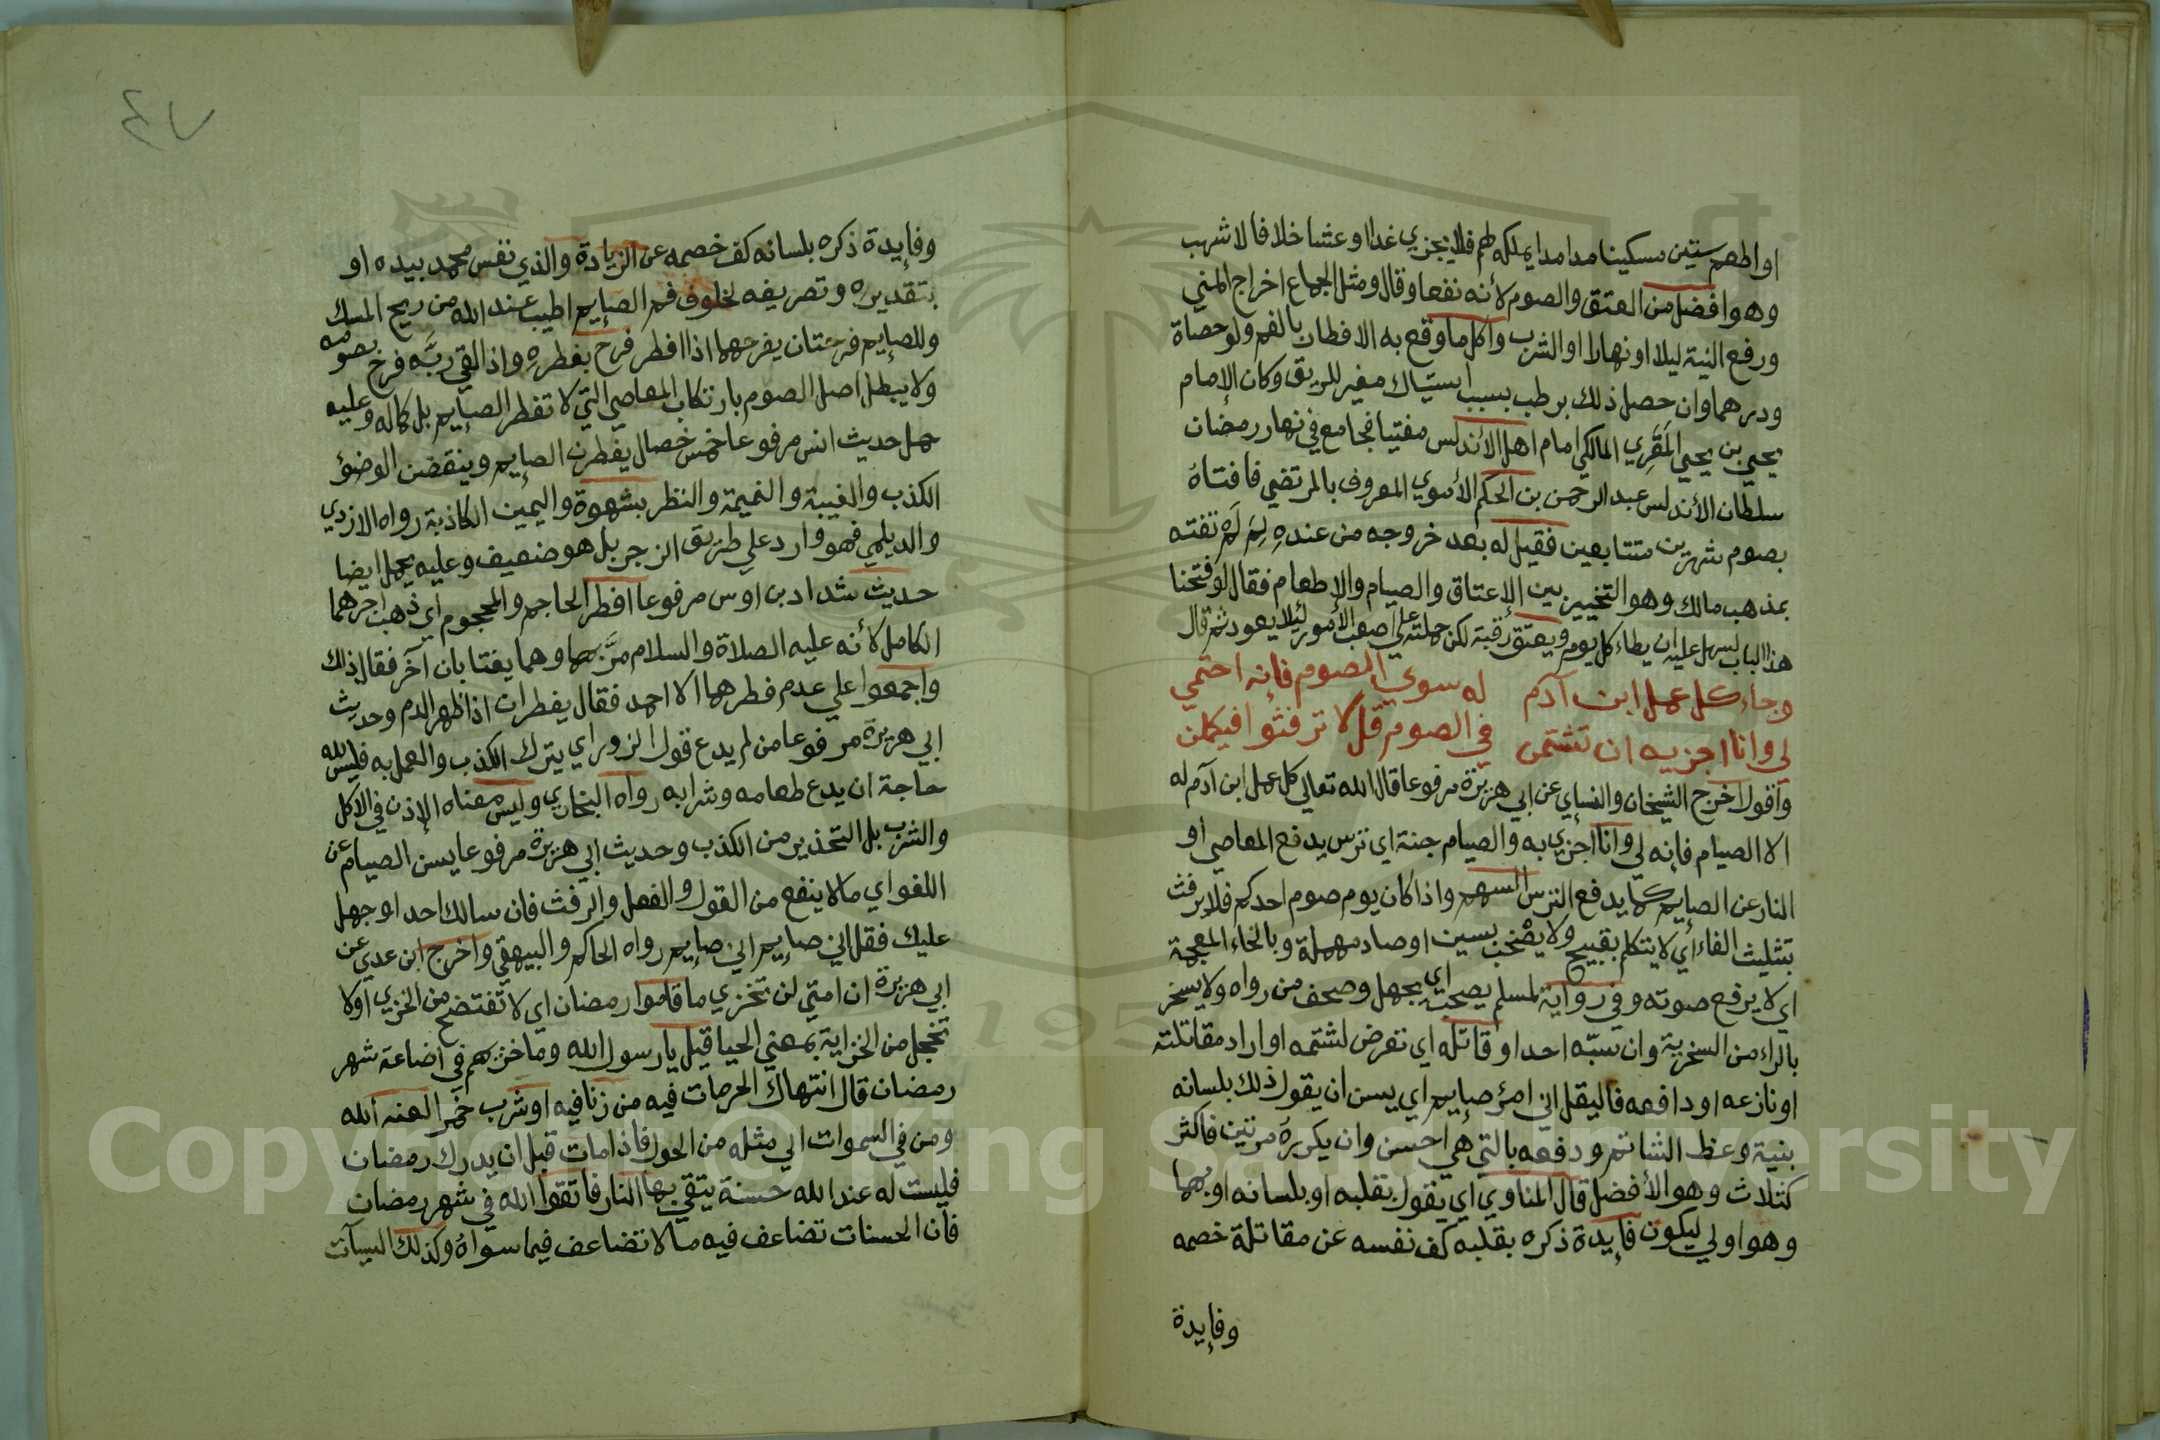 او اطعم ستين مسكينا مدا مدا يملكه لهم فلا يجزي غدا او عشا خلافا لاشهب
وهو افضل من العتق والصوم لأنه نفعا وقال ومثل الجماع اخراج المني
ورفع النية ليلا او نهارا او الشرب واكل ما وقع به الافطار بالفم ولو حصاة
ودرهما وان حصل ذلك برطب بسبب استياك مغير للريق وكان الإمام
يحيي بن يحيي المقري المالكي امام اهل الأندلس مفتيا فجامع في نهار رمضان
سلطان الأندلس عبد الرحمن بن الحكم الأموي المعروف بالمرتضي فافتاه
بصوم شهرين متتابعين فقيل له بعد خروجه من عنده لِمَ لَمْ تفته
بمذهب مالك وهو التخيير بين الإعتاق والصيام والإطعام فقال لو فتحنا
هذا الباب لسهل عليه ان يطاء كل يوم ويعتق رقبة لكن حملته علي اصعب الأمور ليلا يعود ثم قال
وجاء كل عمل ابن آدم له سوي الصوم فإنه احتمي
لي وانا اجزيه ان تشتمن في الصوم قل لا ترفثوا فيكلمن
وأقول اخرج الشيخان والنساي عن ابي هريرة مرفوعا قال الله تعالي كل عمل ابن آدم له
الا الصيام فإنه لي وانا اجزي به والصيام جنة اي ترس يدفع المعاصي او
النار عن الصايم كما يدفع الترس السهم واذا كان يوم صوم احدكم فلا يرفث
بتثليث الفاء اي لا يتكلم بقبيح ولا يصخب بسين او صاد مهملة وبالخاء المعجمة
اي لا يرفع صوته وفي رواية لمسلم اي يجهل وصحف من رواه ولا يسخر
بالراء من السخرية وان سبّه احد او قاتله اي تعرض لشتمه او اراد مقاتلته
او نازعه او دافعه فاليقل اني امرؤ صايم اي يسن ان يقول ذلك بلسانه
بنية وعظ الشاتم ودفعه بالتي هي احسن وان يكرره مرتين فاكثر
كثلاث وهو الأفضل قال المناوي اي يقول بقلبه او بلسانه او بهما
وهو اولي ليكون فايدة ذكره بقلبه كف نفسه عن مقاتلة خصمه
وفايدة
٤٧
وفايدة ذكره بلسانه كف خصمه عن الزيادة والذي نفس محمد بيده او
بتقديره وتصريفه لخلوف فم الصايم اطيب عند الله من ريح المسك
وللصايم فرحتان يفرحهما اذا افطر فرح بفطره واذا لقي ربّه فرح بصومه
ولا يبطل اصل الصوم بارتكاب المعاصي التي لا تفطر الصايم بل كماله وعليه
حمل حديث انس مرفوعا خمس خصال يفطرن الصايم وينقضن الوضؤ
الكذب والغيبة والنميمة والنظر بشهوة واليمين الكاذبة رواه الازدي
والديلمي فهو وارد علي طريق الزجر بل هو ضعيف وعليه يحمل ايضا
حديث شداد بن اوس مرفوعا افطر الحاجم والمحجوم اي ذهب اجرهما
الكامل لأنه عليه الصلاة والسلام مرّ بهما وهما يغتابان آخر فقال ذلك
واجمعوا علي عدم فطرهما الا احمد فقال يفطران اذا ظهر الدم وحديث
ابي هريرة مرفوعا من لم يدع قول الزور اي يترك الكذب والعمل به فليس لله
حاجة ان يدع طعامه وشرابه رواه البخاري وليس معناه الإذن في الاكل
والشرب بل التحذير من الكذب وحديث ابي هريرة مرفوعا يسن الصيام عن
اللغو اي مالا ينفع من القول والفعل والرفث فان سالك احد او جهل
عليك فقل اني صايم اني صايم رواه الحاكم والبيهقي واخرج ابن عدي عن
ابي هريرة ان امتي لن تخزي ما قاموا رمضان اي لا تفتضح من الخزي او لا
تخجل من الخزاية بمعني الحيا قيل يا رسول الله وما خزيهم في اضاعة شهر
رمضان قال انتهاك الحرمات فيه من زنا فيه او شرب خمرا لعنه الله
ومن في السموات الي مثله من الحول فاذا مات قبل ان يدرك رمضان
فليست له عند الله حسنة يتقي بها النار فاتقوا الله في شهر رمضان
فان الحسنات تضاعف فيه مالا تضاعف فيما سواه وكذلك السيآت
Copyright © King Saud University
195